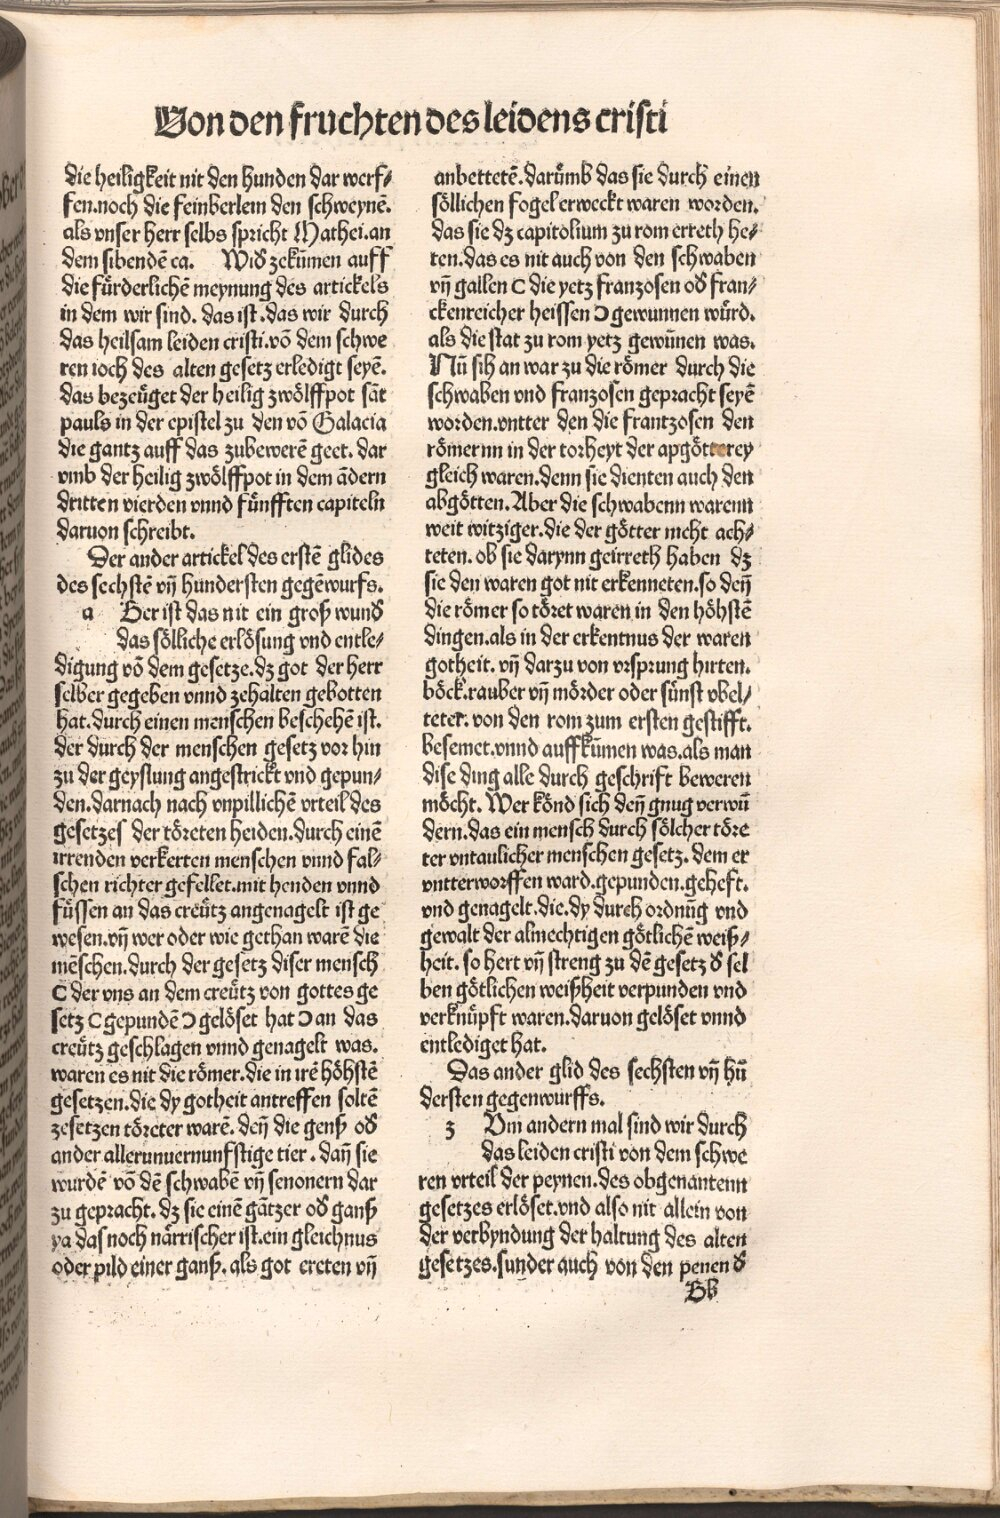 Von den fruchten des leidens cristi
die heiligkeit nit den hunden dar werf⸗
fen.noch die feinberlein den schweynē.
als vnser herr selbs spricht Mathei.an
dem sibendē ca. Wid zekūmen auff
die fürderlichē meynung des artickels
in dem wir sind. das ist.das wir durch
das heilsam leiden cristi.vō dem schwe
ren ioch des alten gesetz erledigt seyē.
das bezeüget der heilig zwölffpot sāt
pauls in der epistel zu den vō Galacia
die gantz auff das zubewerē geet. dar
vmb der heilig zwölffpot in dem ādern
dritten vierden vnnd fünfften capiteln
daruon schreibt.
Der ander artickel des erstē glides
des sechstē vn̄ hundersten gegēwurfs.
a Her ist das nit ein groß wund
das sölliche erlösung vnd entle⸗
digung vō dem gesetze.dz got der herr
selber gegeben vnnd zehalten gebotten
hat.durch einen menschen beschehē ist.
der durch der menschen gesetz vor hin
zu der geyslung angestrickt vnd gepun⸗
den.darnach nach vnpillichē vrteil des
gesetzes der töreten heiden.durch einē
irrenden verkerten menschen vnnd fal⸗
schen richter gefellet.mit henden vnnd
füssen an das creütz angenagelt ist ge
wesen.vn̄ wer oder wie gethan warē die
mēschen.durch der gesetz diser mensch
C der vns an dem creütz von gottes ge
setz C gepundē Ɔ gelöset hat Ɔ an das
creütz geschlagen vnnd genagelt was.
waren es nit die römer.die in irē höhstē
gesetzen.die dy gotheit antreffen soltē
zesetzen töreter warē. den̄ die genß od
ander allerunuernunfftige tier. dan̄ sie
wurdē vō dē schwabē vn̄ senonern dar
zu gepracht. dz sie einē gātzer od ganß
ya das noch närrischer ist.ein gleichnus
oder pild einer ganß. als got ereten vn̄
anbettetē.darūmb das sie durch einen
söllichen fogel erweckt waren worden.
das sie dz capitolium zu rom erreth he⸗
ten.das es nit auch von den schwaben
vn̄ gallen C die yetz franzosen od fran⸗
ckenreicher heissen Ɔ gewunnen würd.
als die stat zu rom yetz gewūnen was.
Nū sih an war zu die römer durch die
schwaben vnd franzosen gepracht seyē
worden.vntter den die frantzosen den
römernn in der torheyt der apgötterey
gleich waren.denn sie dienten auch den
abgötten. Aber die schwabenn warenn
weit witziger.die der götter nicht ach⸗
teten. ob sie darynn geirreth haben dz
sie den waren got nit erkenneten.so den̄
die römer so töret waren in den höhstē
dingen.als in der erkentnus der waren
gotheit. vn̄ darzu von vrsprung hirten.
böck.rauber vn̄ mörder oder sünst vbel⸗
teter. von den rom zum ersten gestifft.
besemet.vnnd auffkūmen was.als man
dise ding alle durch geschrift beweren
möcht. Wer könd sich den̄ gnug verwū
dern.das ein mensch durch sölcher töre
ter vntaulicher menschen gesetz. dem er
vntterworffen ward.gepunden.geheft.
vnd genagelt.die.dy durch ordnūg vnd
gewalt der almechtigen götlichē weiß⸗
heit. so hert vn̄ streng zu dē gesetz d sel
ben götlichen weißheit verpunden vnd
verknüpft waren.daruon gelöset vnnd
entlediget hat.
Das ander glid des sechsten vn̄ hū
dersten gegenwurffs.
3 Vm andern mal sind wir durch
das leiden cristi von dem schwe
ren vrteil der peynen.des obgenantenn
gesetzes erlöset.vnd also nit allein von
der verbyndung der haltung des alten
gesetzes.sunder auch von den penen d
Bb